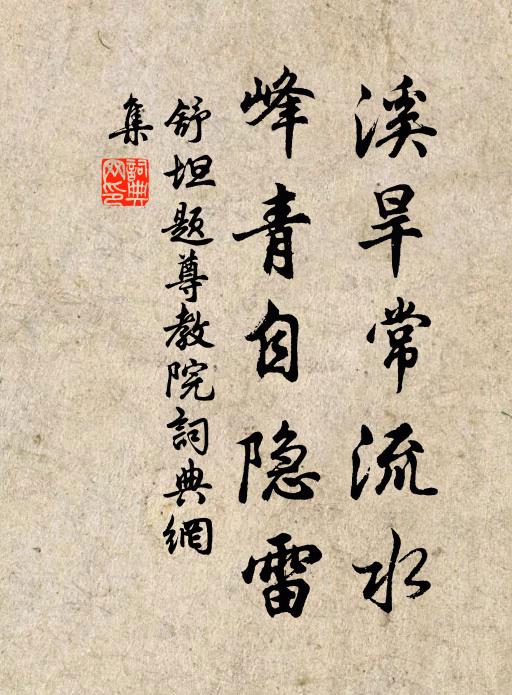 溪旱常流水
峰青自隐雷
舒坦题尊教院詞典網
集
詞典網印